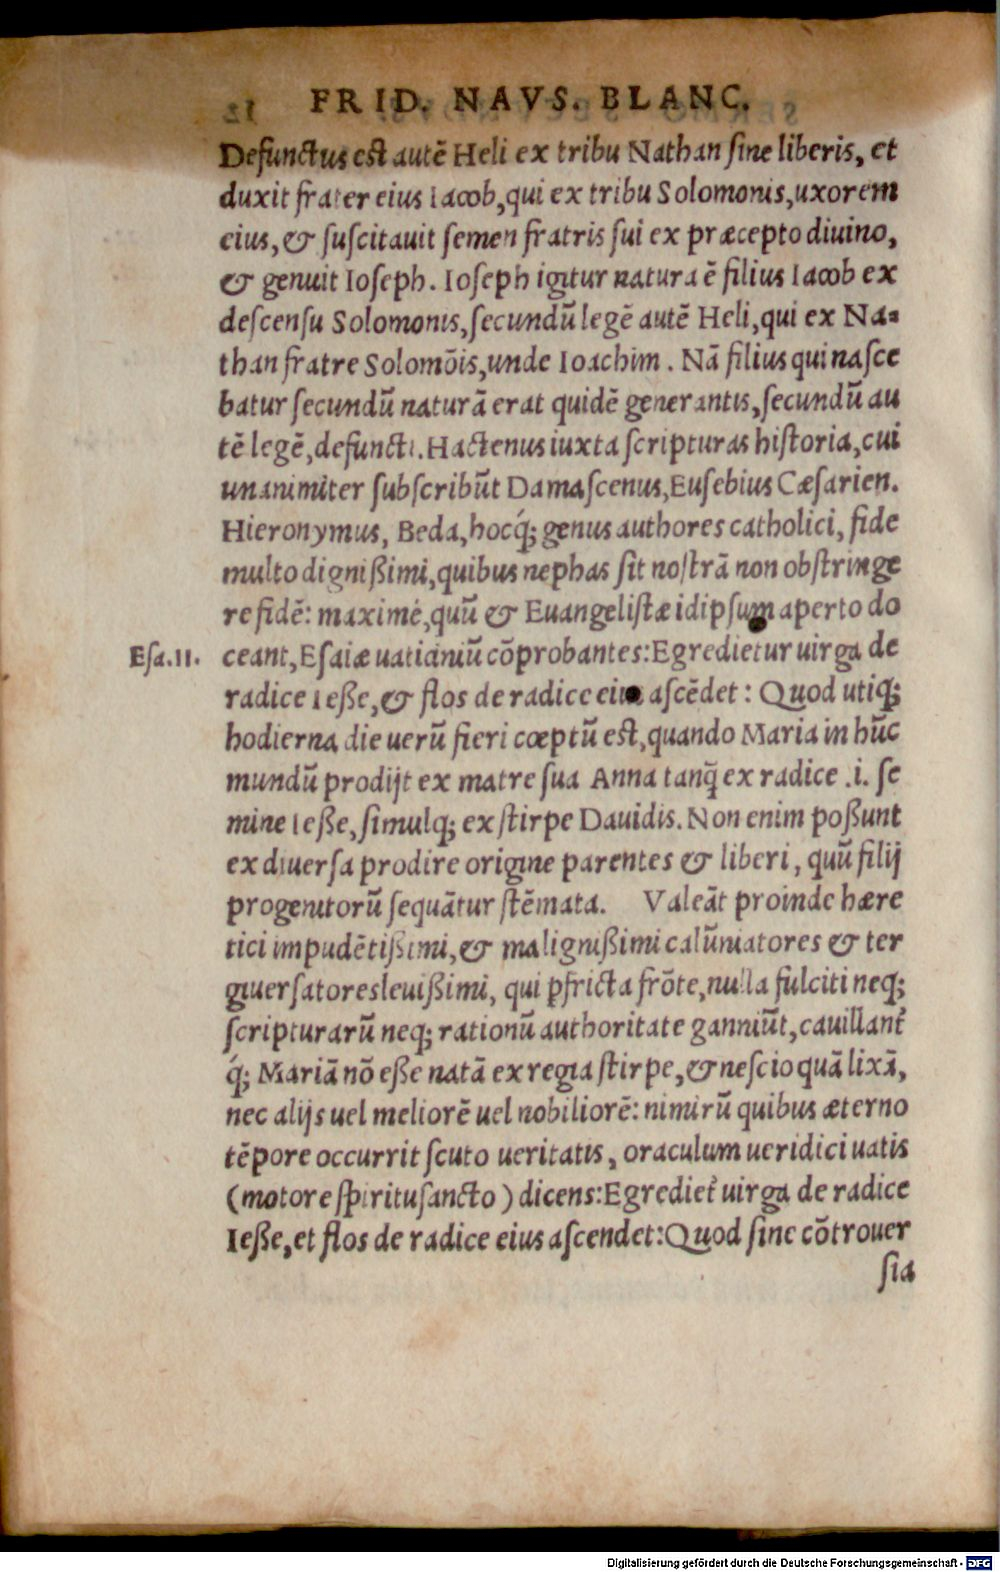 FRID. NAVS. BLANC.
Defunctus est autē Heli ex tribu Nathan ſine liberis, et
duxit frater eius Iacob, qui ex tribu Solomonis, uxorem
eius, & ſuſcitauit ſemen fratris ſui ex præcepto diuino,
& genuit Ioſeph. Ioſeph igitur natura ē filius Iacob ex
deſcenſu Solomonis, ſecundū legē autē Heli, qui ex Na=
than fratre Solomōis, unde Ioachim. Nā filius qui naſce
batur ſecundū naturā erat quidē generantis, ſecundū au
tē legē, defuncti. Hactenus iuxta ſcripturas hiſtoria, cui
unanimiter ſubſcribūt Damaſcenus, Euſebius Cæſarien.
Hieronymus, Beda, hocq́; genus authores catholici, fide
multo digniſſimi, quibus nephas ſit noſtrā non obſtringe
re fidē: maximè, quū & Euangeliſtæ idipſum aperto do
Eſa.11.
ceant, Eſaiæ uaticiniū cōprobantes: Egredietur uirga de
radice Ieſſe, & flos de radice eius aſcēdet: Quod utiq;
hodierna die uerū fieri cœptū est, quando Maria in hūc
mundū prodijt ex matre ſua Anna tanq̄ ex radice .i. ſe
mine Ieſſe, ſimulq; ex ſtirpe Dauidis. Non enim poſſunt
ex diuerſa prodire origine parentes & liberi, quū filij
progenitorū ſequātur ſtēmata. Valeāt proinde hære
tici impudētiſſimi, & maligniſſimi calūniatores & ter
giuerſatores leuiſſimi, qui ꝑfricta frōte, nulla fulciti neq;
ſcripturarū neq; rationū authoritate ganniūt, cauillant᷑
q́; Mariā nō eſſe natā ex regia ſtirpe, & neſcio quā lixā,
nec alijs uel meliorē uel nobiliorē: nimirū quibus æterno
tēpore occurrit ſcuto ueritatis, oraculum ueridici uatis
(motore ſpiritu ſancto) dicens: Egrediet᷑ uirga de radice
Ieſſe, et flos de radice eius aſcendet: Quod ſine cōtrouer
ſia
Digitalisierung gefördert durch die Deutsche Forschungsgemeinschaft - DFG